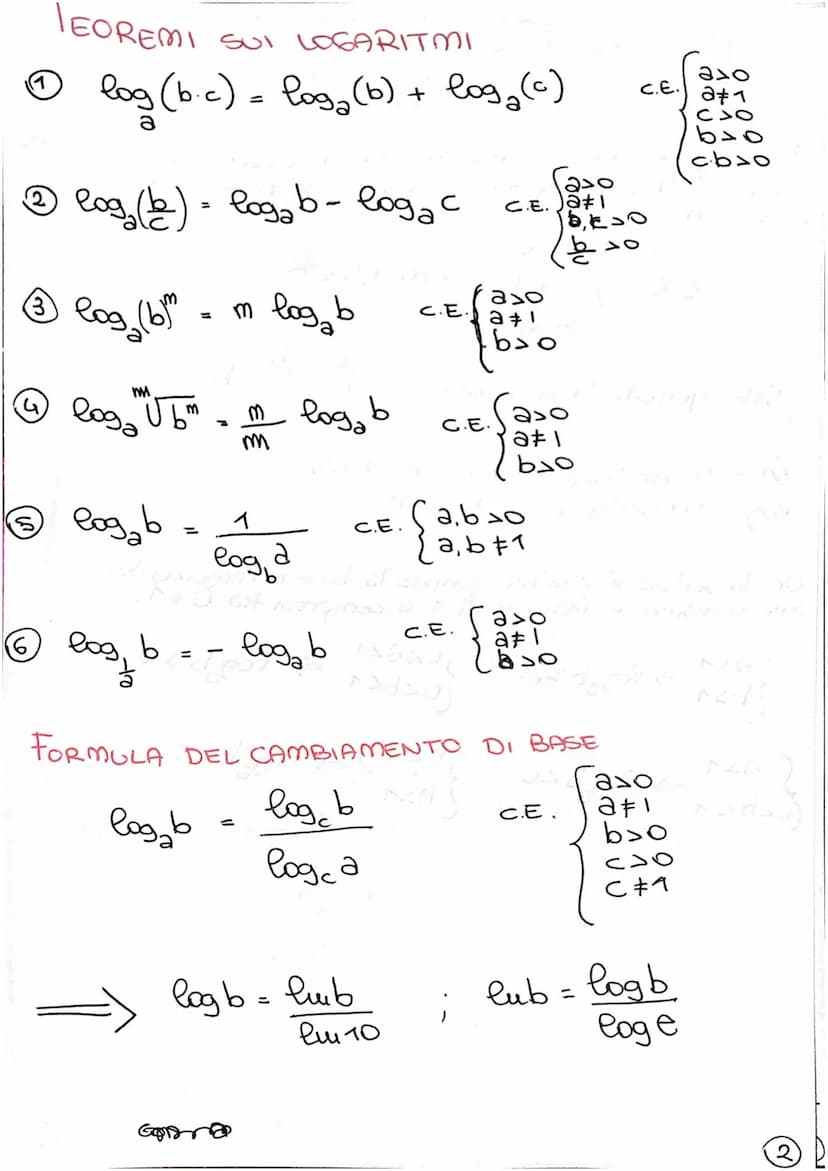 TEOREMI SUI LOGARITMI
① logₐ(b·c) = logₐ(b) + logₐ(c) C.E. { a>0 a≠1 c>0 b>0 c·b>0
② logₐ(b/c) = logₐb - logₐc C.E. { a>0 a≠1 b,c>0 b/c >0
③ logₐ(b)ᵐ = m logₐb C.E. { a>0 a≠1 b>0
④ logₐ ⁿ√bᵐ = m/n logₐb C.E. { a>0 a≠1 b>0
⑤ logₐb = 1/log_b a C.E. { a,b>0 a,b≠1
⑥ log_1/a b = - logₐb C.E. { a>0 a≠1 b>0
FORMULA DEL CAMBIAMENTO DI BASE
logₐb = log_c b / log_c a C.E. { a>0 a≠1 b>0 c>0 c≠1
⟹ log b = ln b / ln 10 ; ln b = log b / log e
②